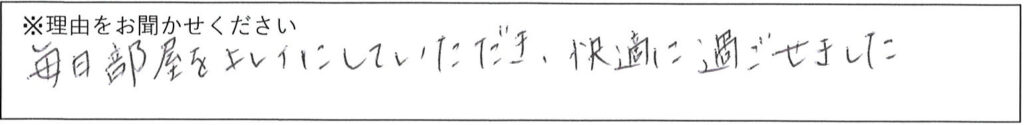 ※理由をお聞かせください
毎日部屋をキレイにしていただき、快適に過ごせました